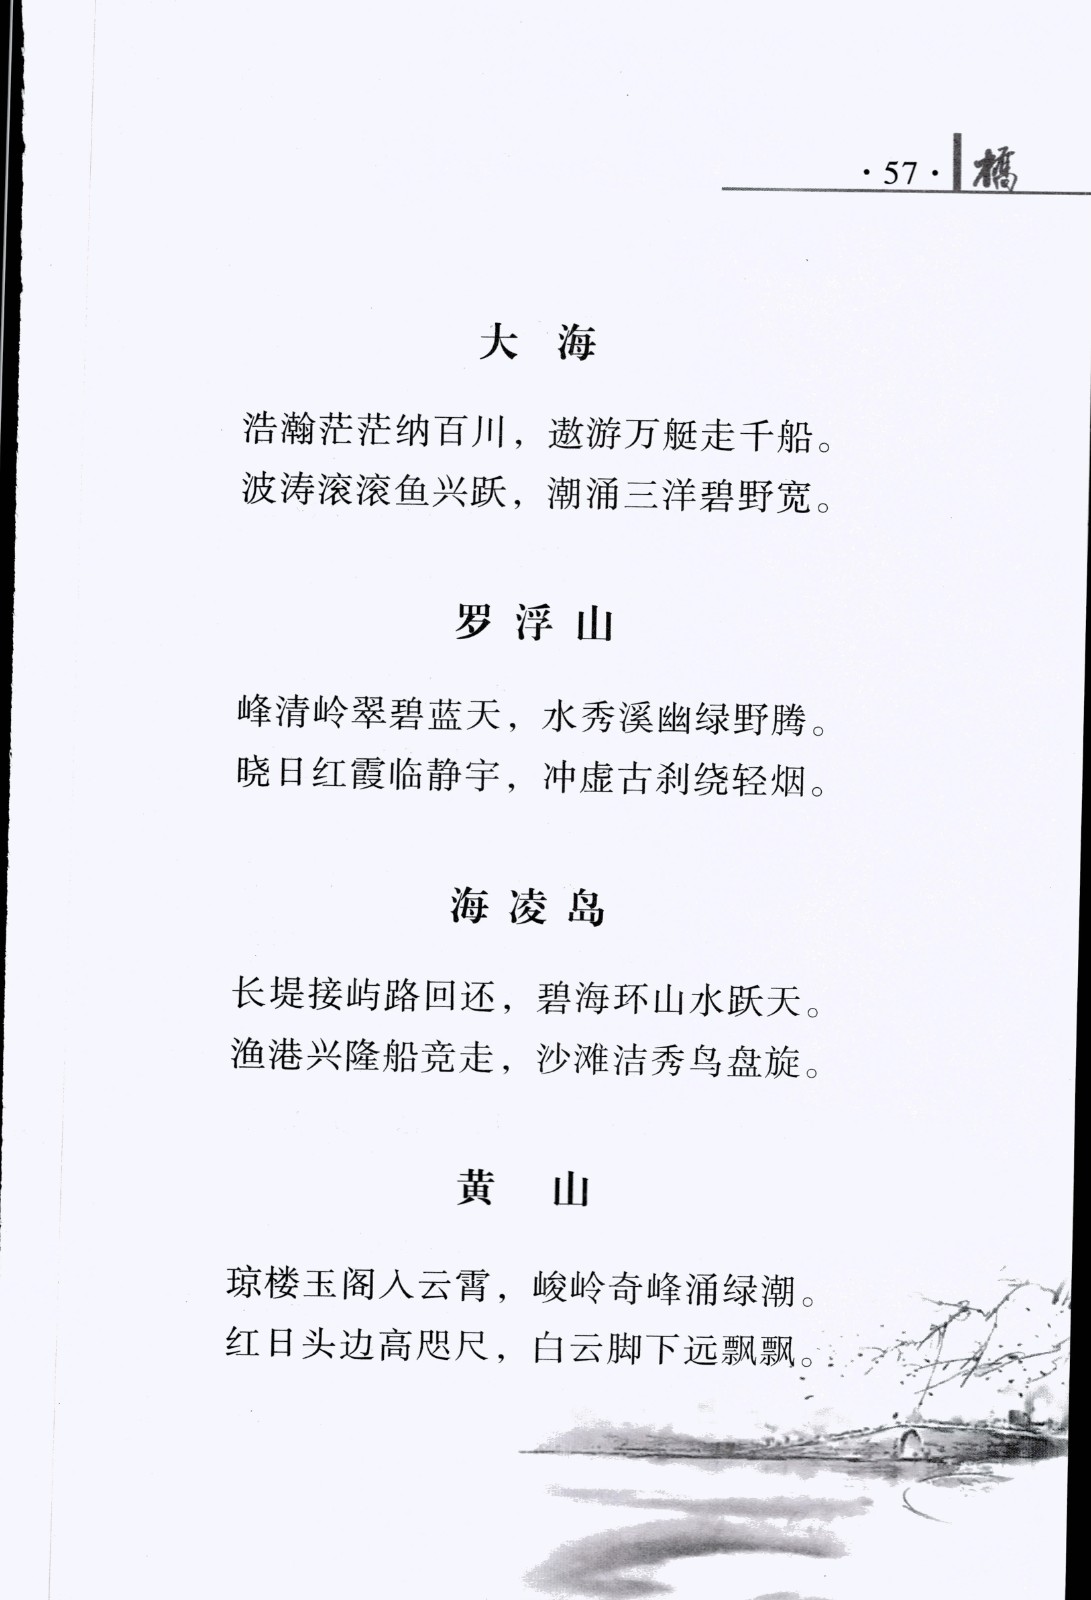 ·57· 橋
大 海
浩瀚茫茫纳百川，遨游万艇走千船。
波涛滚滚鱼兴跃，潮涌三洋碧野宽。
罗浮山
峰清岭翠碧蓝天，水秀溪幽绿野腾。
晓日红霞临静宇，冲虚古刹绕轻烟。
海凌岛
长堤接屿路回还，碧海环山水跃天。
渔港兴隆船竞走，沙滩洁秀鸟盘旋。
黄 山
琼楼玉阁入云霄，峻岭奇峰涌绿潮。
红日头边高咫尺，白云脚下远飘飘。